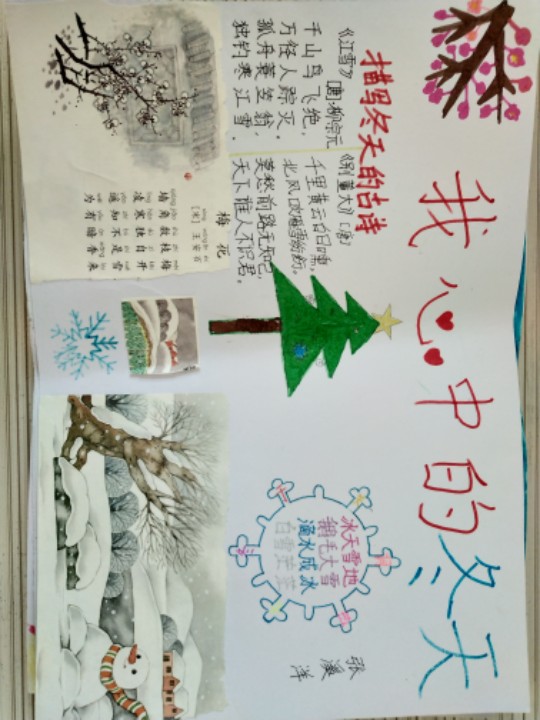 我心中的冬天
描写冬天的古诗
《江雪》 [唐]柳宗元
千山鸟飞绝，
万径人踪灭。
孤舟蓑笠翁，
独钓寒江雪。
《别董大》[唐]
千里黄云白日曛，
北风吹雁雪纷纷。
莫愁前路无知己，
天下谁人不识君。
梅花
[宋] 王安石
墙角数枝梅，
凌寒独自开。
遥知不是雪，
为有暗香来。
冰天雪地
鹅毛大雪
滴水成冰
白雪茫茫
张溪洋